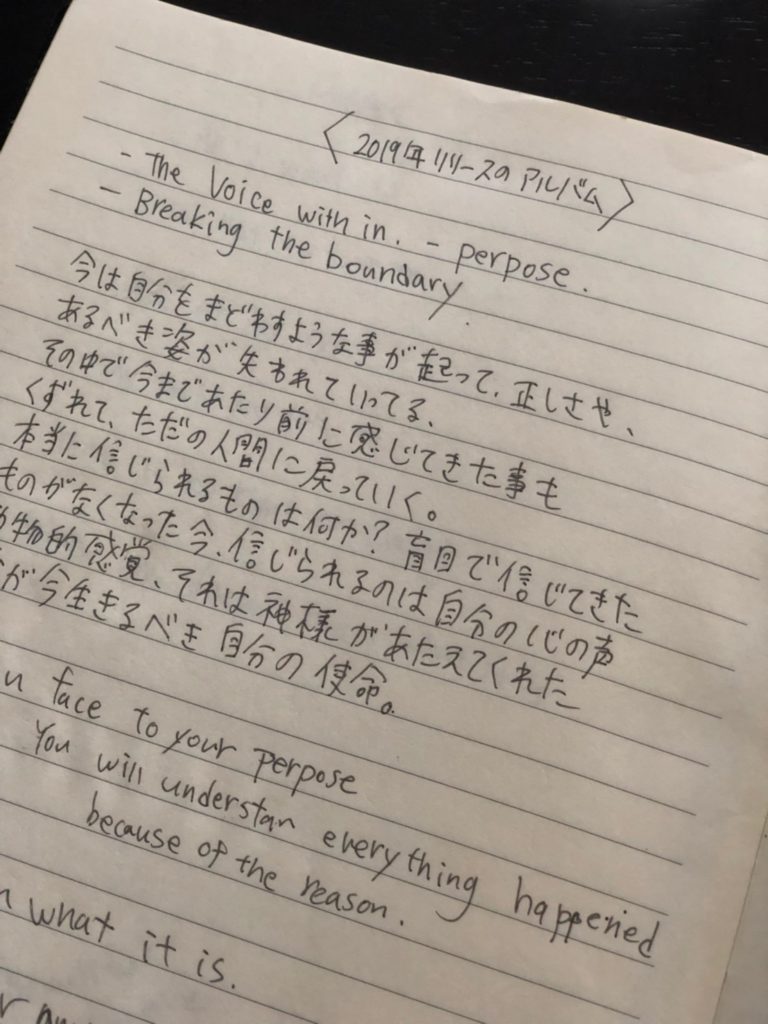 〈2019年リリースのアルバム〉
- The Voice with in. - perpose.
- Breaking the boundary.
今は自分をまどわすような事が起って、正しさや、
あるべき姿が失われていってる、
その中で今まであたり前に感じてきた事も
くずれて、ただの人間に戻っていく。
本当に信じられるものは何か? 盲目で信じてきた
ものがなくなった今、信じられるのは自分の心の声
物的感覚、それは神様があたえてくれた
が今生きるべき自分の使命。
face to your perpose
You will understan everything happened
because of the reason.
what it is.